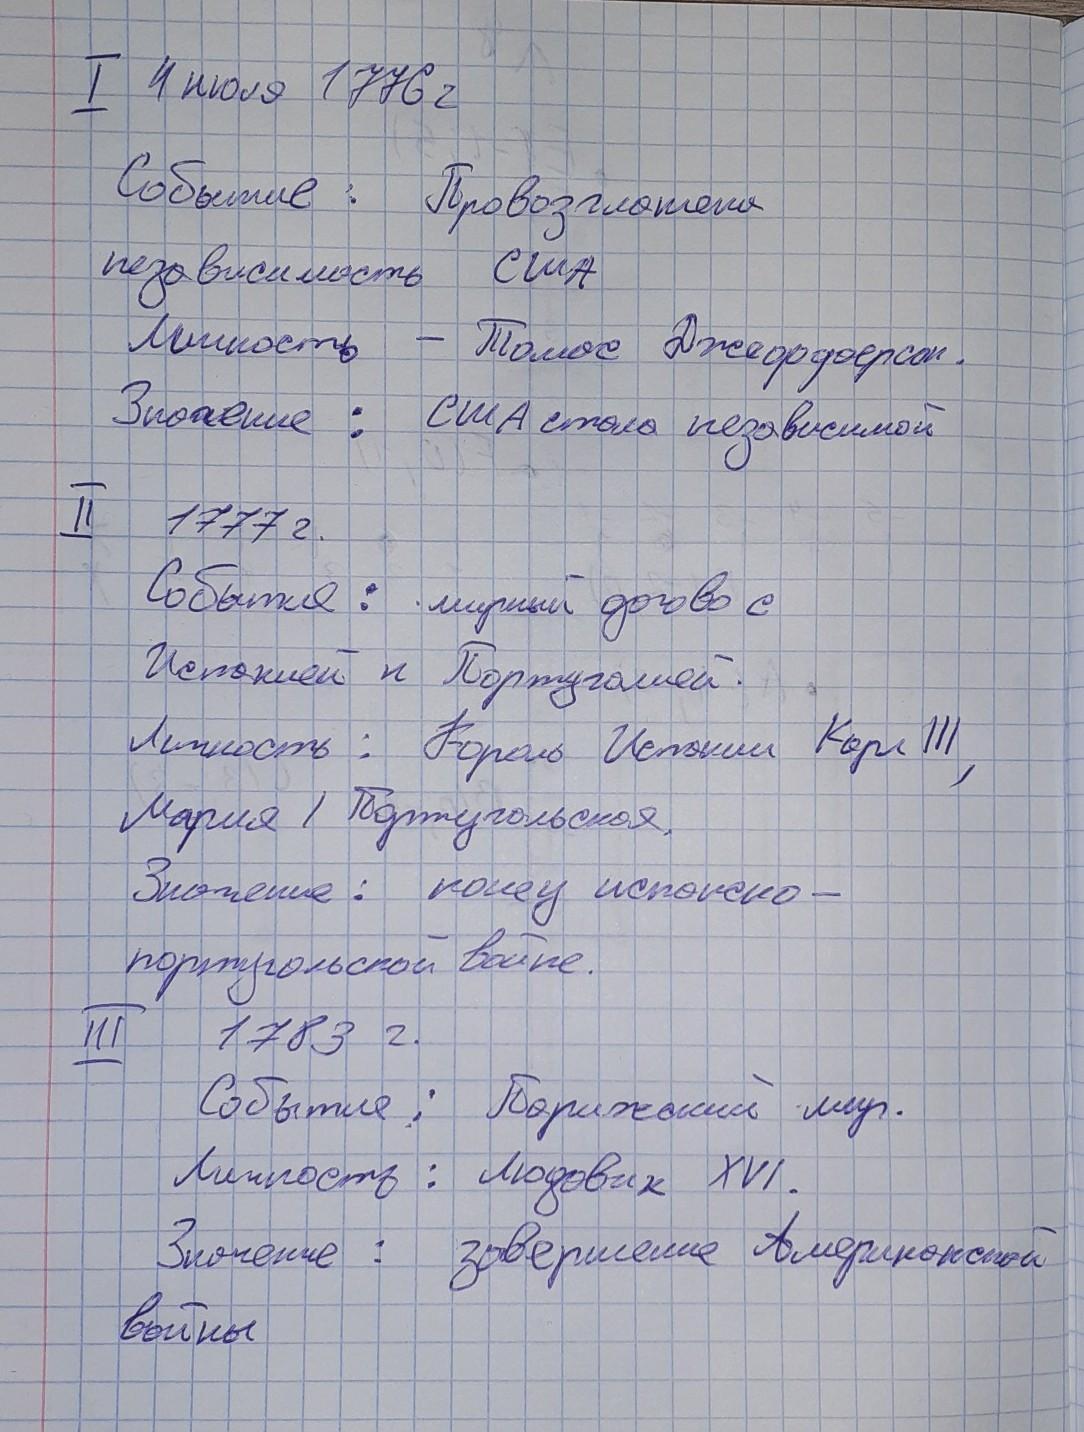 I 4 июля 1776 г
Событие: Провозглашена
независимость США
Личность – Томас Джеффферсон.
Значение: США стала независимой
II 1777 г.
Событие: мирный догово с
Испанией и Португалией.
Личность: Король Испании Карл III,
Мария I Португальская.
Значение: конец испанско-
португальской войне.
III 1783 г.
Событие: Парижский мир.
Личность: Людовик XVI.
Значение: завершение Американской
войны